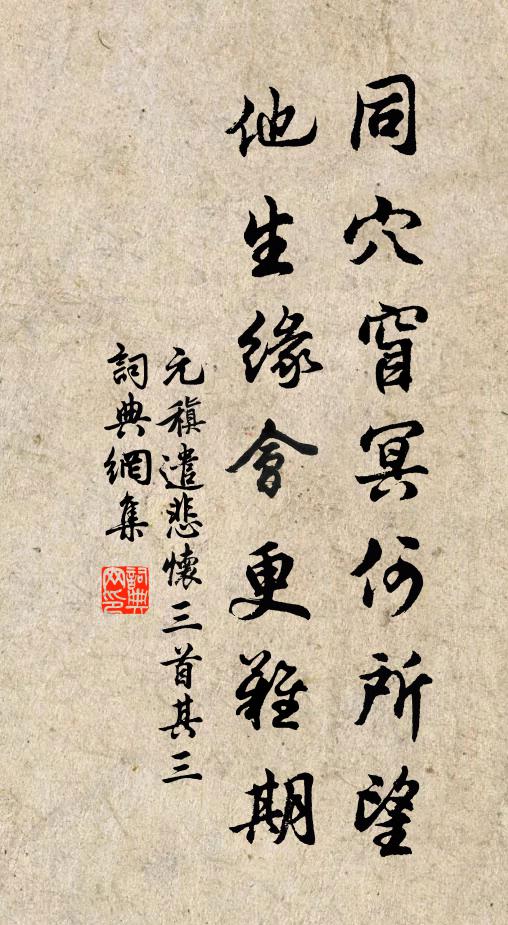 同穴窅冥何所望
他生緣會更難期
元稹遣悲懷三首其三
詞典網集
詞典网印